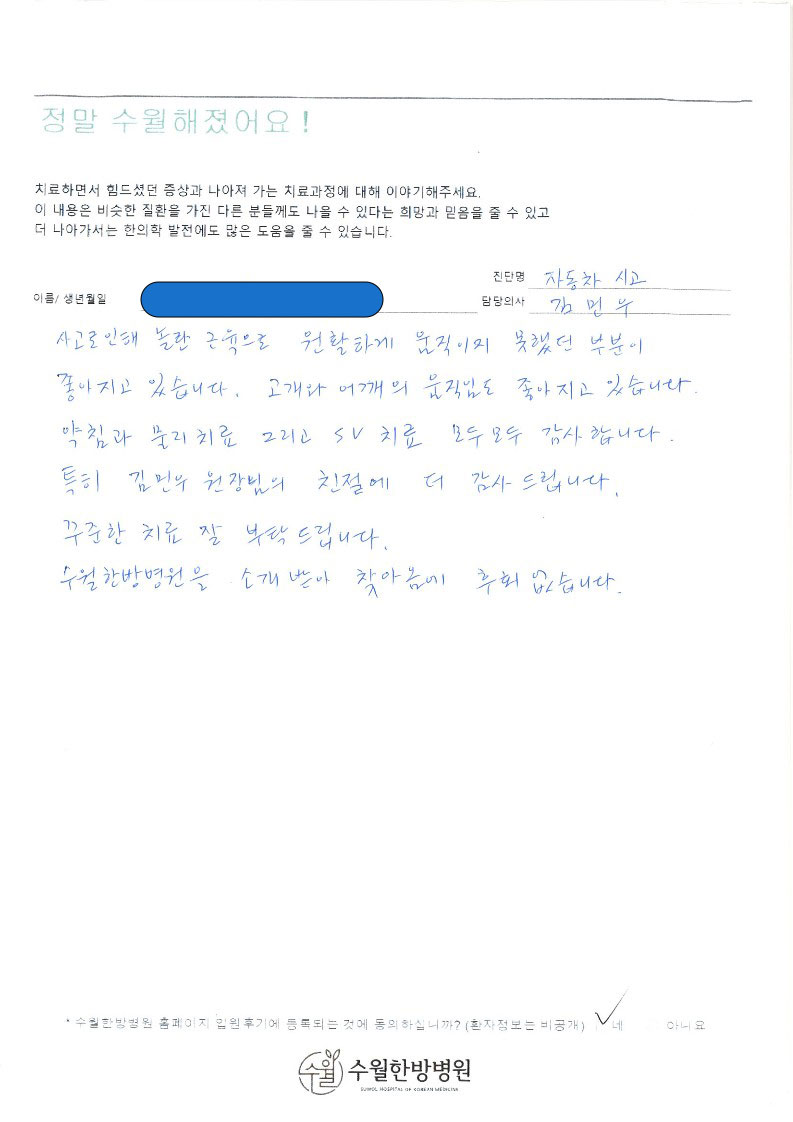 정말 수월해졌어요!
치료하면서 힘드셨던 증상과 나아져 가는 치료과정에 대해 이야기해주세요.
이 내용은 비슷한 질환을 가진 다른 분들께도 나을 수 있다는 희망과 믿음을 줄 수 있고
더 나아가서는 한의학 발전에도 많은 도움을 줄 수 있습니다.
진단명 자동차 사고
이름/ 생년월일
담당의사 김민우
사고로인해 놀란 근육으로 원활하게 움직이지 못했던 부분이
좋아지고 있습니다. 고개와 어깨의 움직임도 좋아지고 있습니다.
약침과 물리치료 그리고 SV 치료 모두모두 감사합니다.
특히 김민우 원장님의 친절에 더 감사드립니다.
꾸준한 치료 잘 부탁드립니다.
수월한방병원을 소개받아 찾아옴에 후회 없습니다.
* 수월한방병원 홈페이지 입원후기에 등록되는 것에 동의하십니까? (환자정보는 비공개) 네 아니요
수월 수월한방병원
SUWOL HOSPITAL OF KOREAN MEDICINE